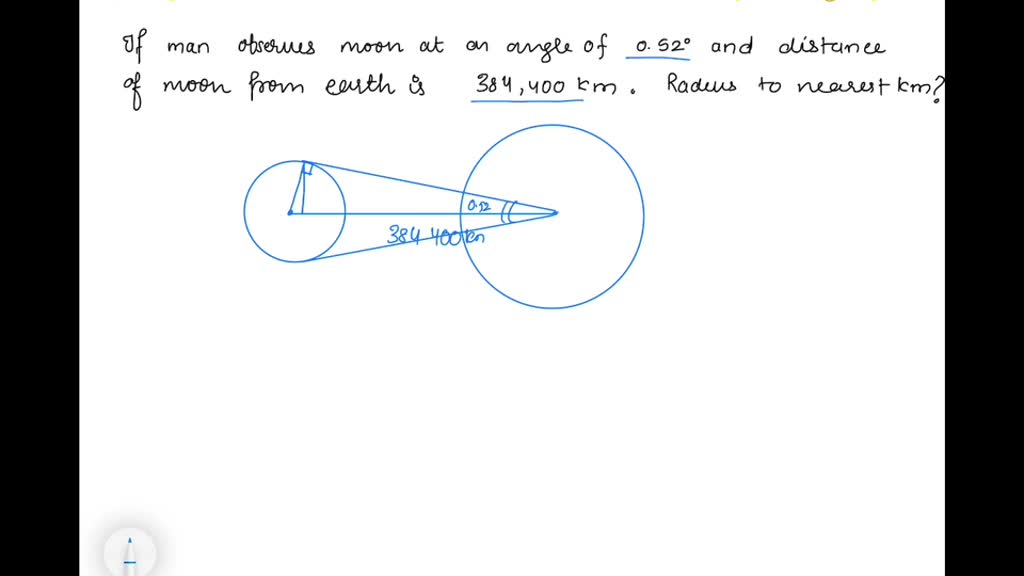 If man observes moon at an angle of 0.52° and distance
of moon from earth is 384,400 km. Radius to nearest km?
0.52
384 400 km